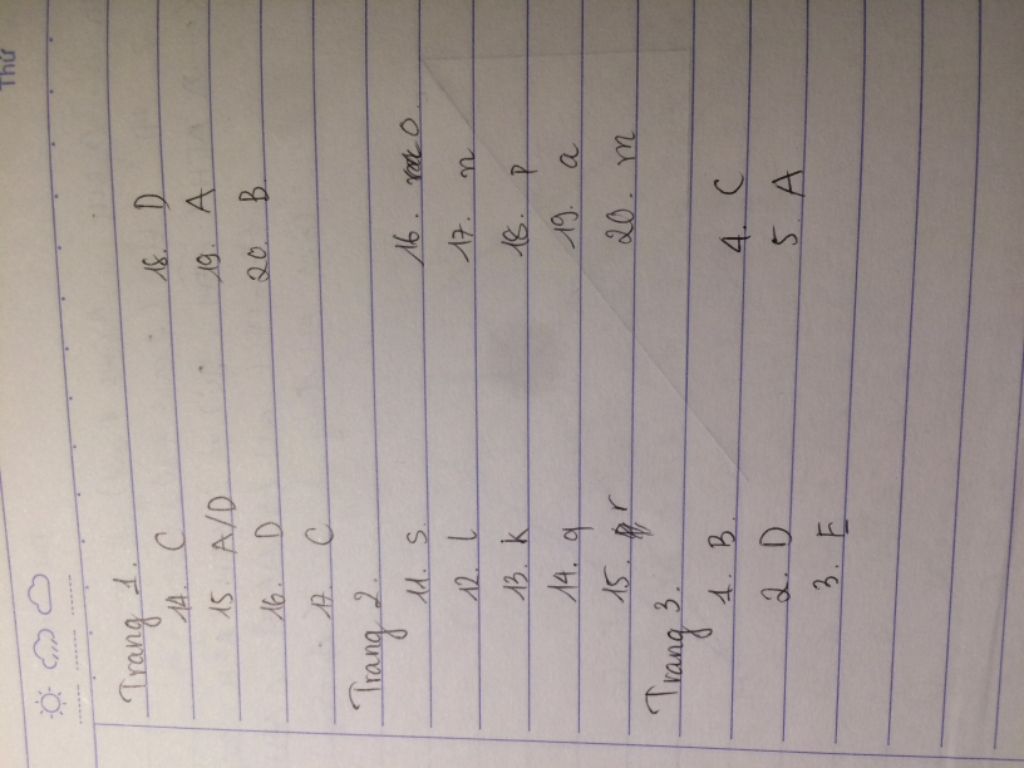 Thứ
Trang 1.
14. C 18. D
15. A/D 19. A
16. D 20. B
17. C
Trang 2.
11. s 16. o
12. l 17. n
13. k 18. p
14. q 19. a
15. r 20. m
Trang 3.
1. B 4. C
2. D 5. A
3. E